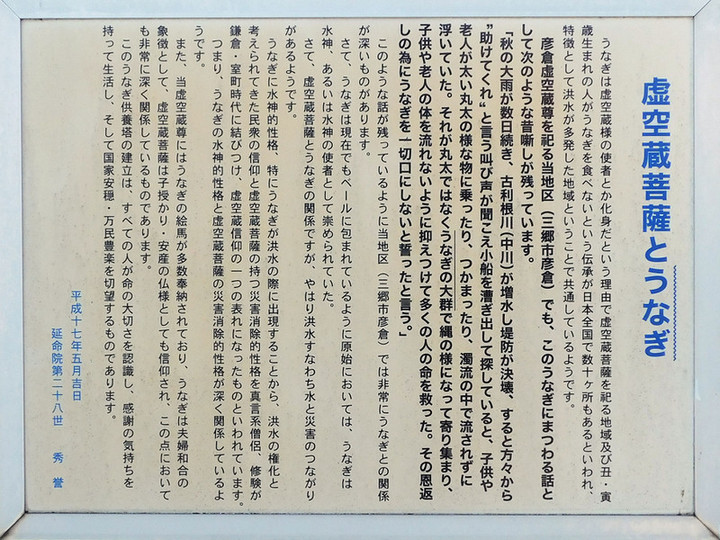 虚空蔵菩薩とうなぎ
うなぎは虚空蔵様の使者とか化身だという理由で虚空蔵菩薩を祀る地域及び丑・寅
歳生まれの人がうなぎを食べないという伝承が日本全国で数十ヶ所もあるといわれ、
特徴として洪水が多発した地域ということで共通しているようです。
彦倉虚空蔵尊を祀る当地区（三郷市彦倉）でも、このうなぎにまつわる話と
して次のような昔噺しが残っています。
「秋の大雨が数日続き、古利根川（中川）が増水し堤防が決壊、すると方々から
〝助けてくれ〟と言う叫び声が聞こえ小船を漕ぎ出して探していると、子供や
老人が太い丸太の様な物に乗ったり、つかまったり、濁流の中で流されずに
浮いていた。それが丸太ではなくうなぎの大群で縄の様になって寄り集まり、
子供や老人の体を流れないように抑えつけて多くの人の命を救った。その恩返
しの為にうなぎを一切口にしないと誓ったと言う。」
このような話が残っているように当地区（三郷市彦倉）では非常にうなぎとの関係
が深いものがあります。
さて、うなぎは現在でもベールに包まれているように原始においては、うなぎは
水神、あるいは水神の使者として崇められていた。
さて、虚空蔵菩薩とうなぎの関係ですが、やはり洪水すなわち水と災害のつながり
があるようです。
うなぎに水神的性格、特にうなぎが洪水の際に出現することから、洪水の権化と
考えられてきた民衆の信仰と虚空蔵菩薩の持つ災害消除的性格を真言系僧侶、修験が
鎌倉・室町時代に結びつけ、虚空蔵信仰の一つの表れになったものといわれています。
つまり、うなぎの水神的性格と虚空蔵菩薩の災害消除的性格が深く関係しているよ
うです。
また、当虚空蔵尊にはうなぎの絵馬が多数奉納されており、うなぎは夫婦和合の
象徴として、虚空蔵菩薩は子授かり・安産の仏様としても信仰され、この点において
も非常に深く関係しているものであります。
このうなぎ供養塔の建立は、すべての人が命の大切さを認識し、感謝の気持ちを
持って生活し、そして国家安穏・万民豊楽を切望するものであります。
平成十七年五月吉日
延命院第二十八世　秀誉